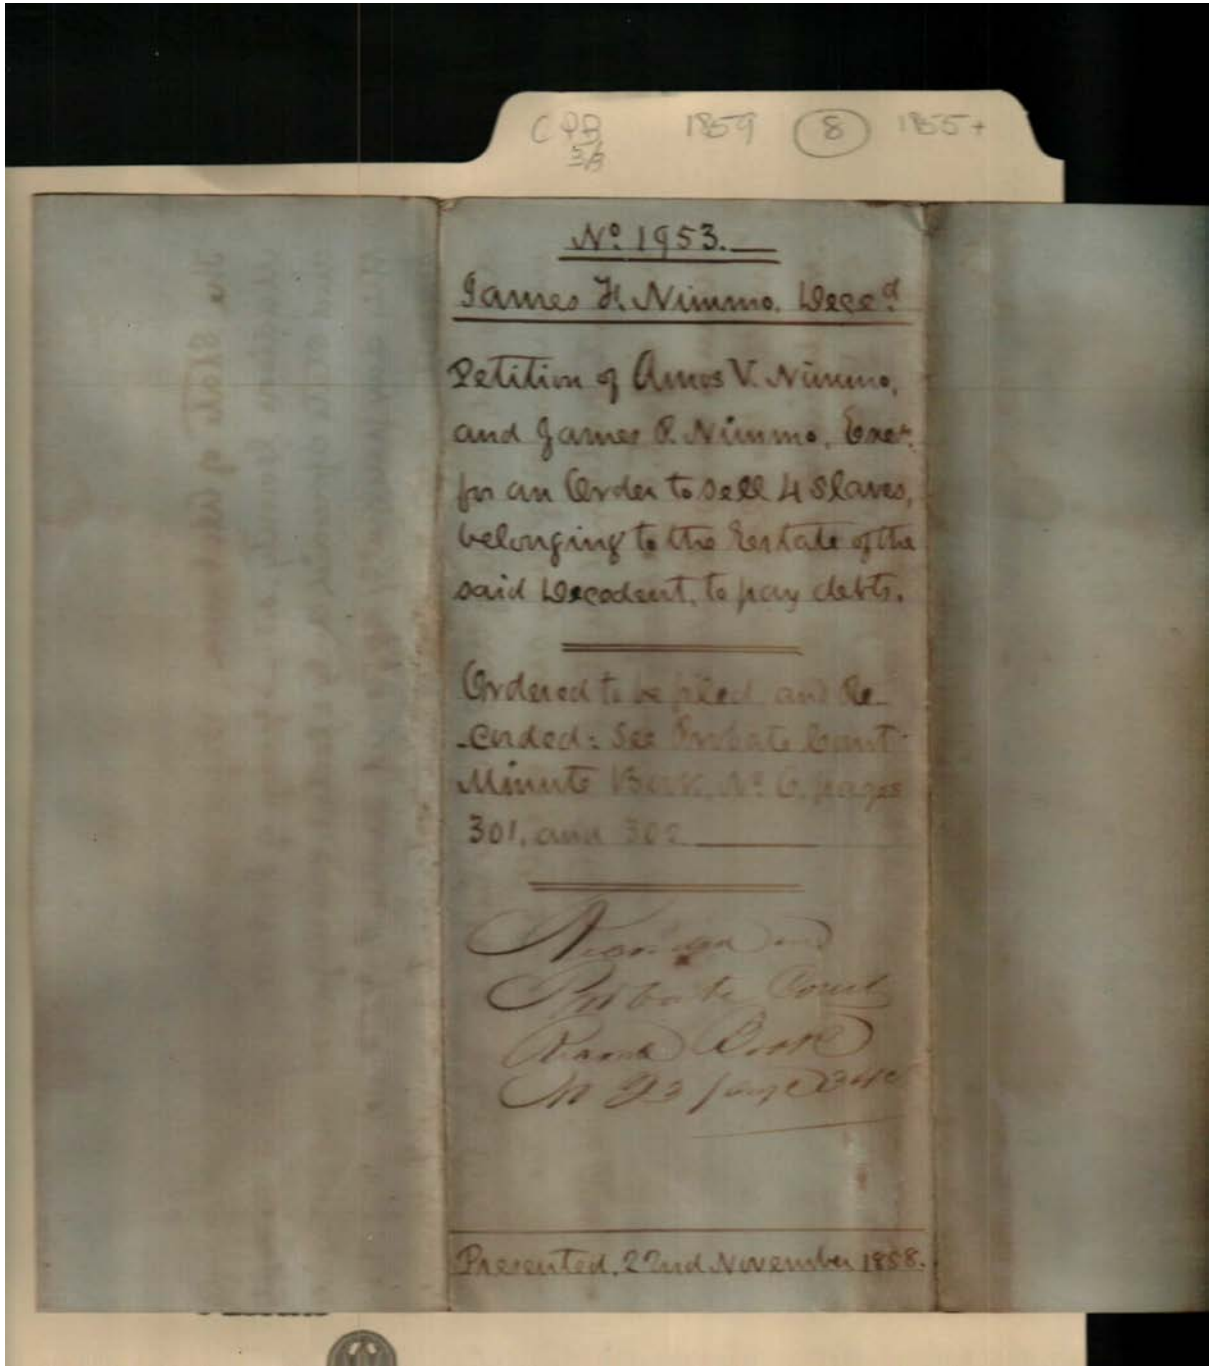 CPB 1859 8 1855+
3/3
No. 1953.
James H. Nimmo, Deced
Petition of Amos V. Nimmo,
and James P. Nimmo, Exer.
for an Order to sell 4 Slaves,
belonging to the Estate of the
said Decedent, to pay debts.
Ordered to be filed and Re-
-corded: See Probate Court
Minute Book, No. 6, pages
301, and 302
Recorded in
Probate Court
Record Book
No 23 page
Presented, 22nd November 1858.
The State of